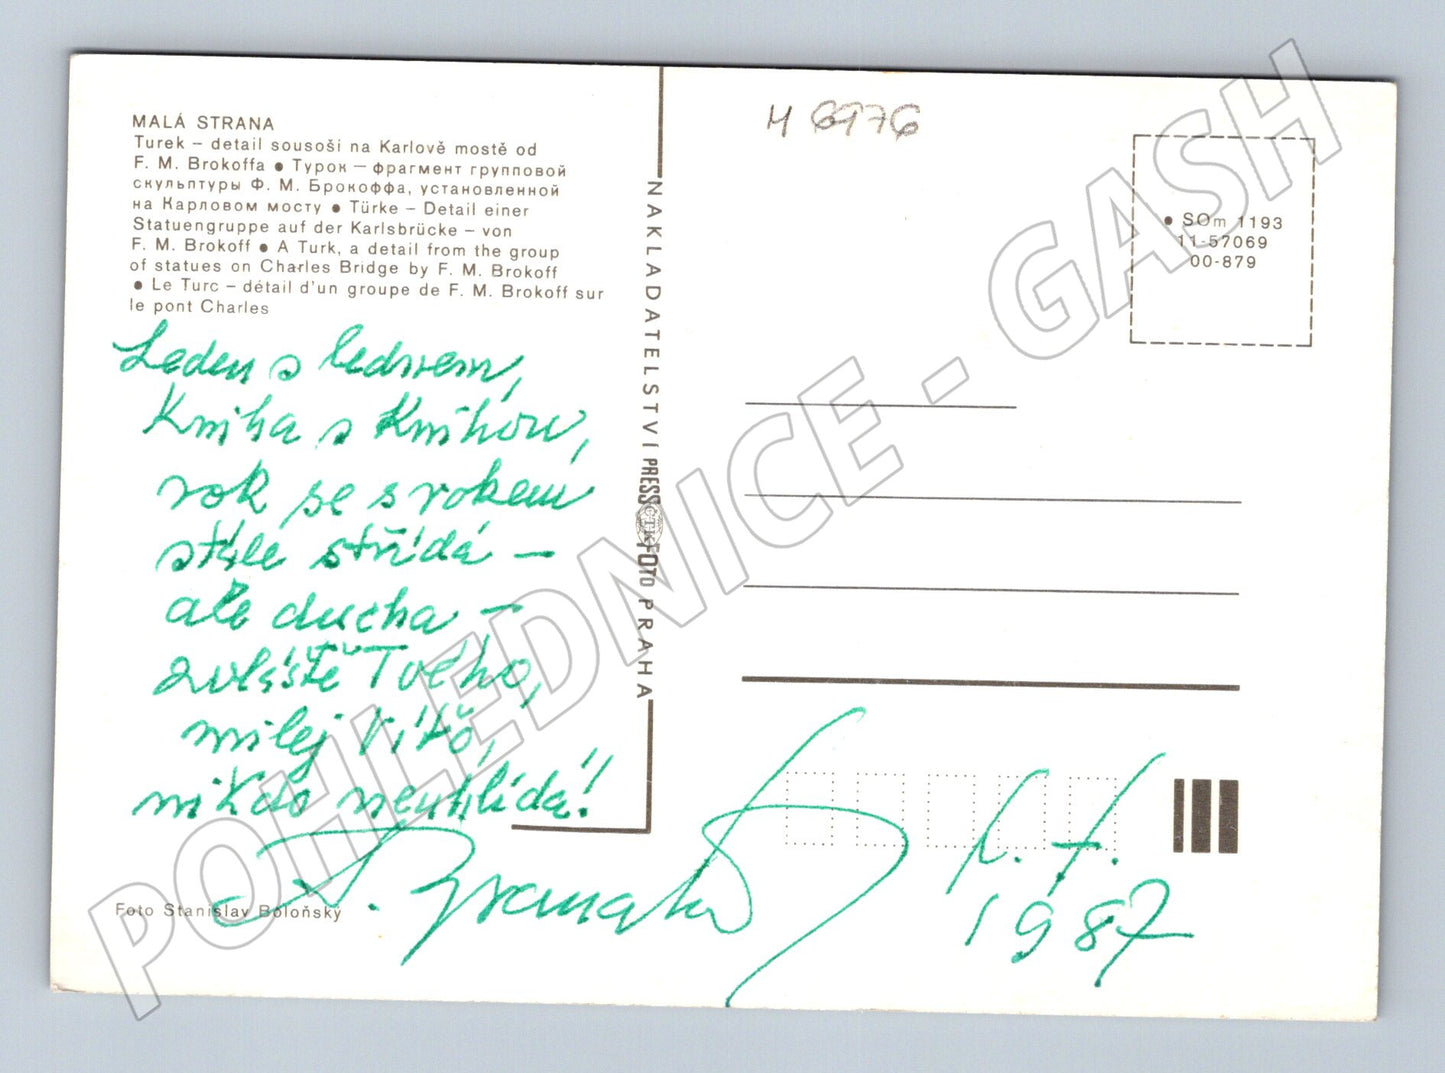 MALÁ STRANA
Turek – detail sousoší na Karlově mostě od
F. M. Brokoffa ● Турок – фрагмент групповой
скульптуры Ф. М. Брокоффа, установленной
на Карловом мосту ● Türke – Detail einer
Statuengruppe auf der Karlsbrücke – von
F. M. Brokoff ● A Turk, a detail from the group
of statues on Charles Bridge by F. M. Brokoff
● Le Turc – détail d'un groupe de F. M. Brokoff sur
le pont Charles
Leden s lednem,
Kniha s Knihou,
rok se s rokem
stále střídá –
ale ducha –
zvláště Tvého,
milej Víťo,
nikdo neuhlídá!
Foto Stanislav Boloňský
NAKLADATELSTVÍ PRESSFOTO PRAHA
ČTK
H 6976
● SOm 1193
11-57069
00-879
P. f.
1987
POHLEDNICE - GASH